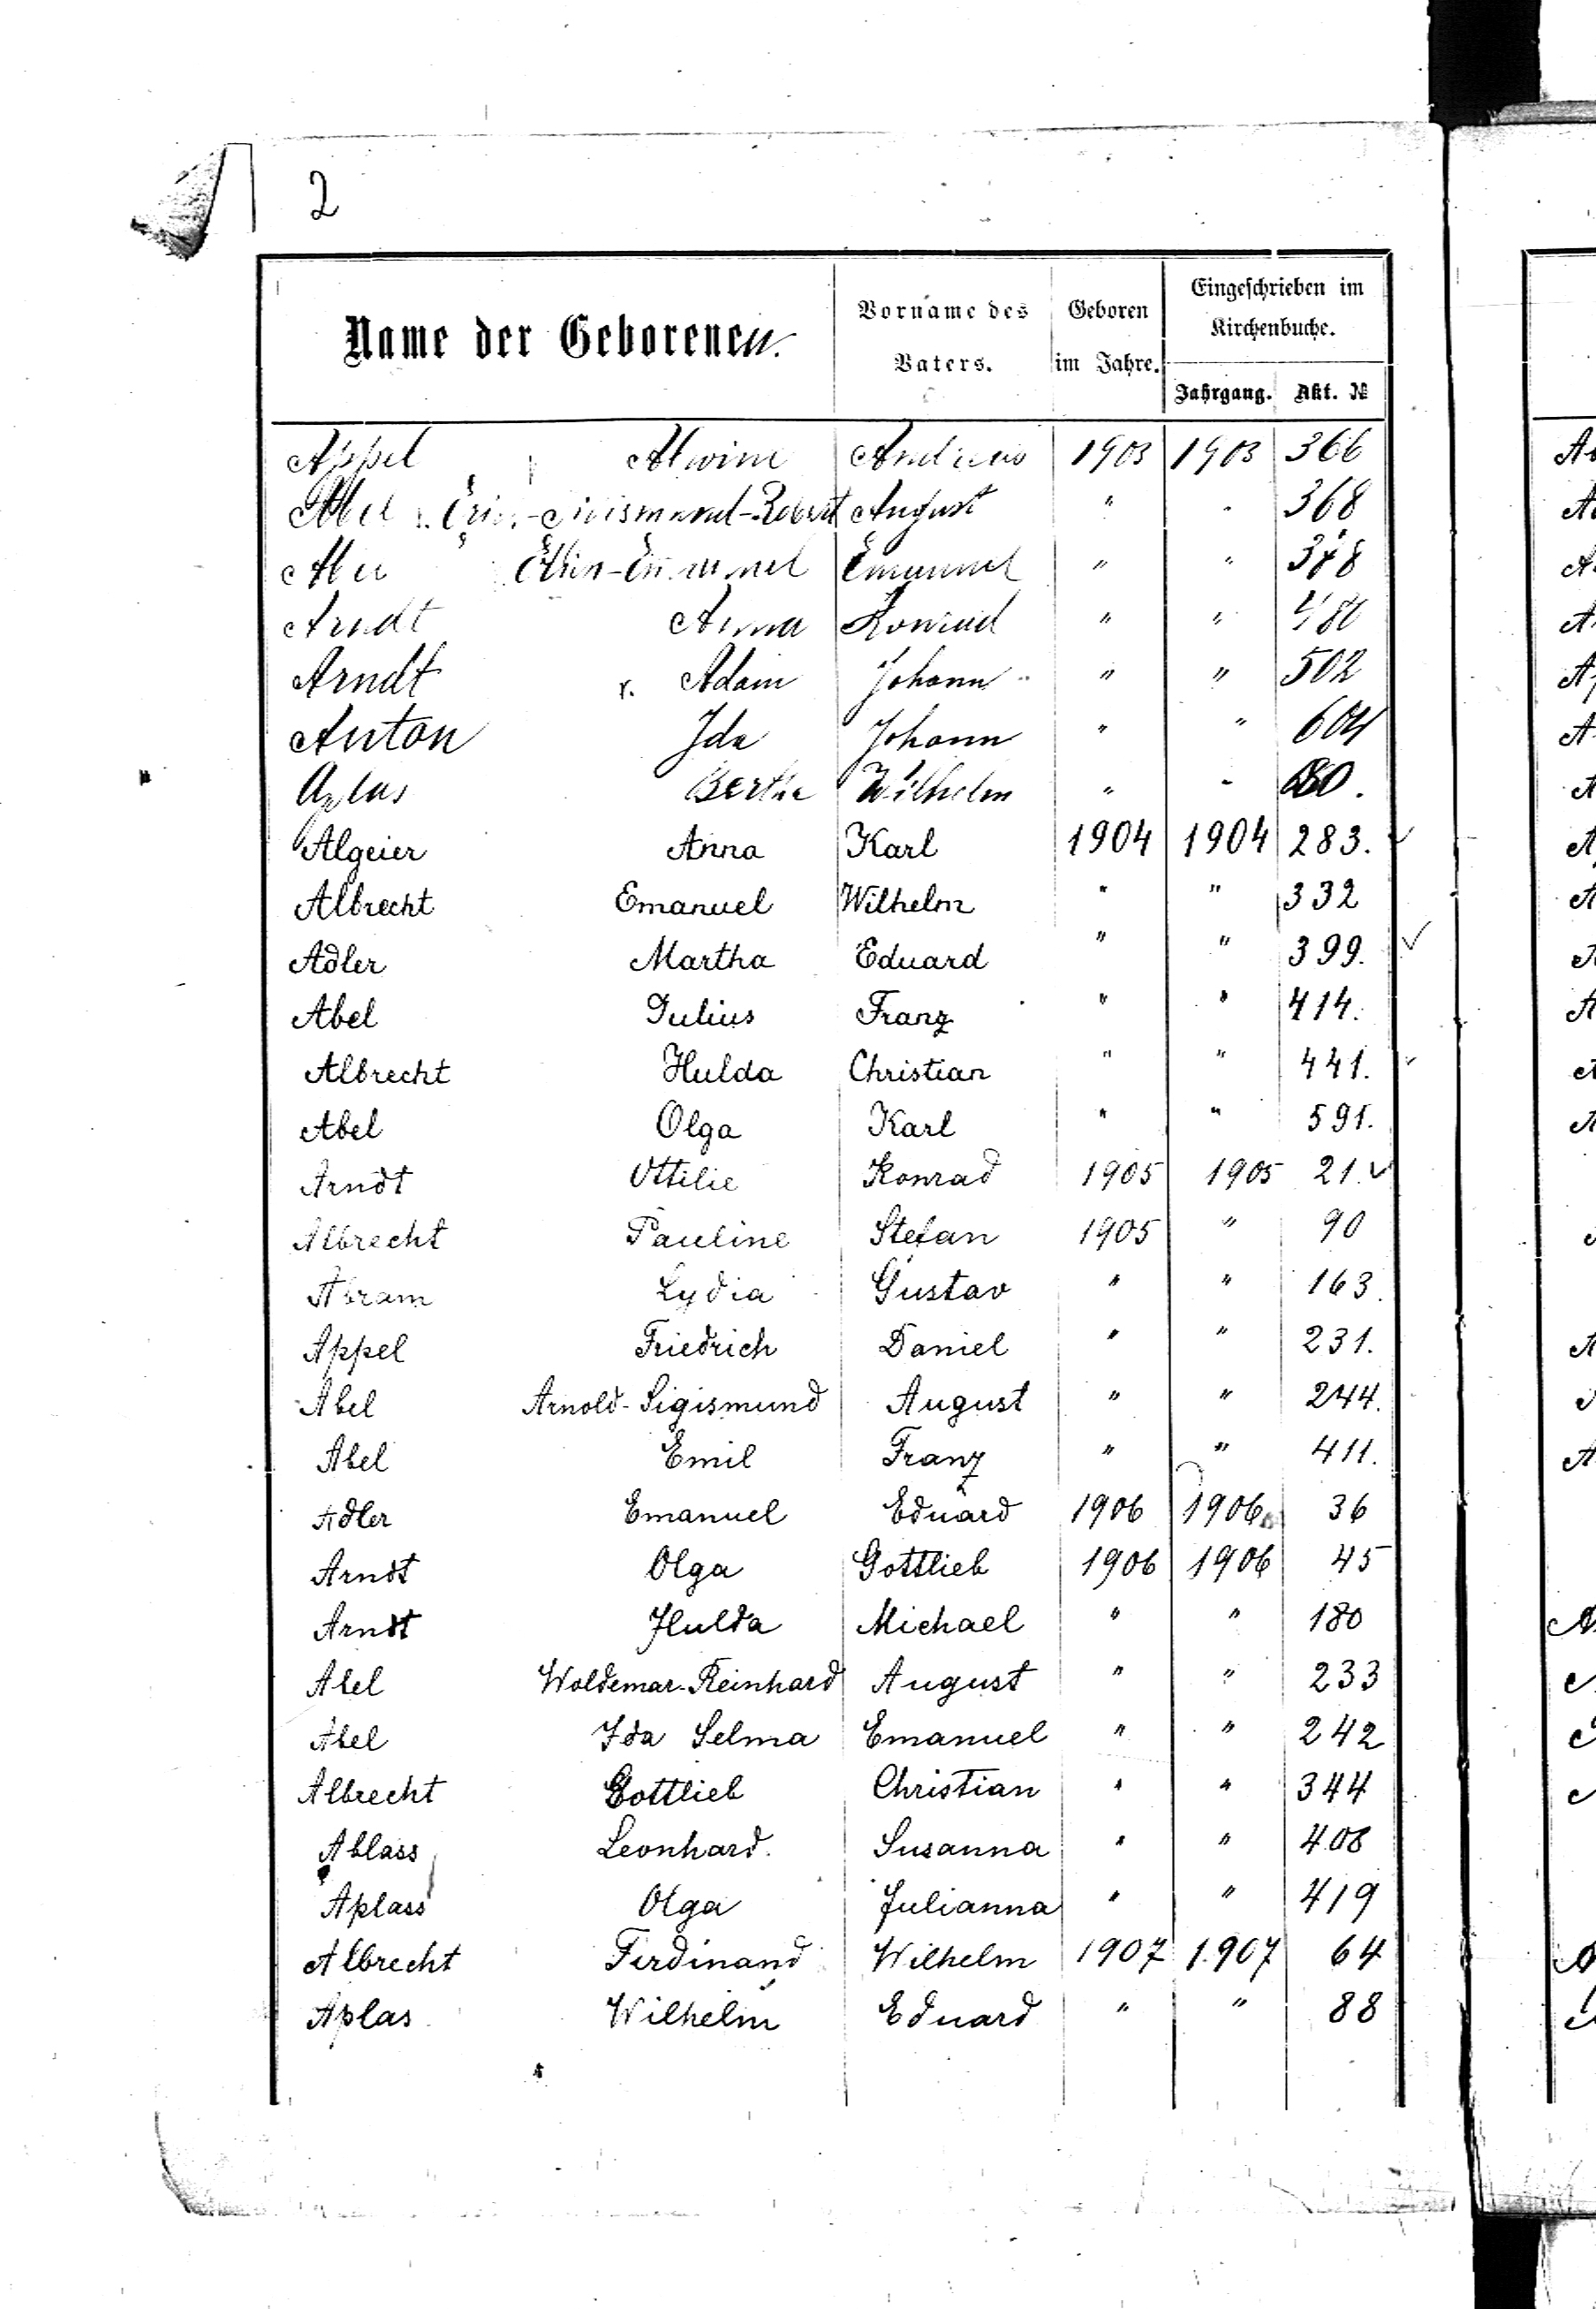 2
Name der Geborenen.
Vorname des Vaters.
Geboren im Jahre.
Eingeschrieben im Kirchenbuche.
Jahrgang. Akt. №
Appel Alwine Andreas 1903 1903 366
Abel Sigismund-Robert August " " 368
Emanuel " "
Arndt Anna Konrad " " 480
Arndt Adam Johann " " 502
Anton Ida Johann " " 604
Aplas Bertha Wilhelm " "
Algeier Anna Karl 1904 1904 283.
Albrecht Emanuel Wilhelm " " 332
Adler Martha Eduard " " 399.
Abel Julius Franz " " 414.
Albrecht Hulda Christian " " 441.
Abel Olga Karl " " 591.
Arndt Ottilie Konrad 1905 1905 21.
Albrecht Pauline Stefan 1905 " 90
Abram Lydia Gustav " " 163.
Appel Friedrich Daniel " " 231.
Abel Arnold-Sigismund August " " 244.
Abel Emil Franz " " 411.
Adler Emanuel Eduard 1906 1906 36
Arndt Olga Gottlieb 1906 1906 45
Arndt Hulda Michael " " 180
Abel Woldemar-Reinhard August " " 233
Abel Ida Selma Emanuel " " 242
Albrecht Gottlieb Christian " " 344
Ablass Leonhard. Susanna " " 408
Aplass Olga Julianna " " 419
Albrecht Ferdinand Wilhelm 1907 1907 64
Aplas Wilhelm Eduard " " 88